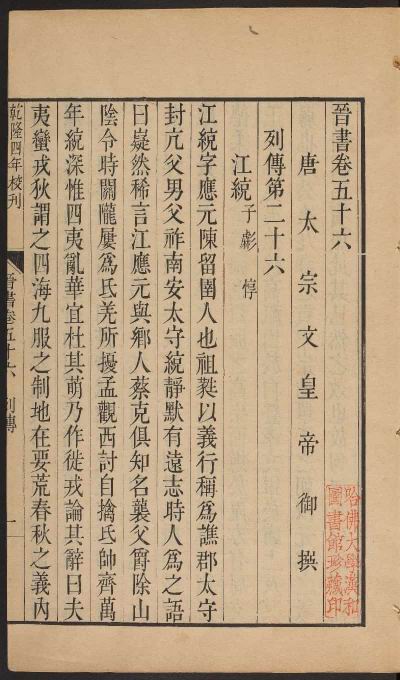 晉書卷五十六
唐太宗文皇帝御撰
列傳第二十六
江統 子虨 惇
江統字應元陳留圉人也祖蕤以義行稱爲譙郡太守
封亢父男父祚南安太守統靜默有遠志時人爲之語
曰嶷然稀言江應元與鄉人蔡克俱知名襲父爵除山
陰令時關隴屢爲氐羌所擾孟觀西討自擒氐帥齊萬
年統深惟四夷亂華宜杜其萌乃作徙戎論其辭曰夫
夷蠻戎狄謂之四海九服之制地在要荒春秋之義內
乾隆四年校刊
晉書卷五十六 列傳
一
哈佛大學漢和
圖書館珍藏印